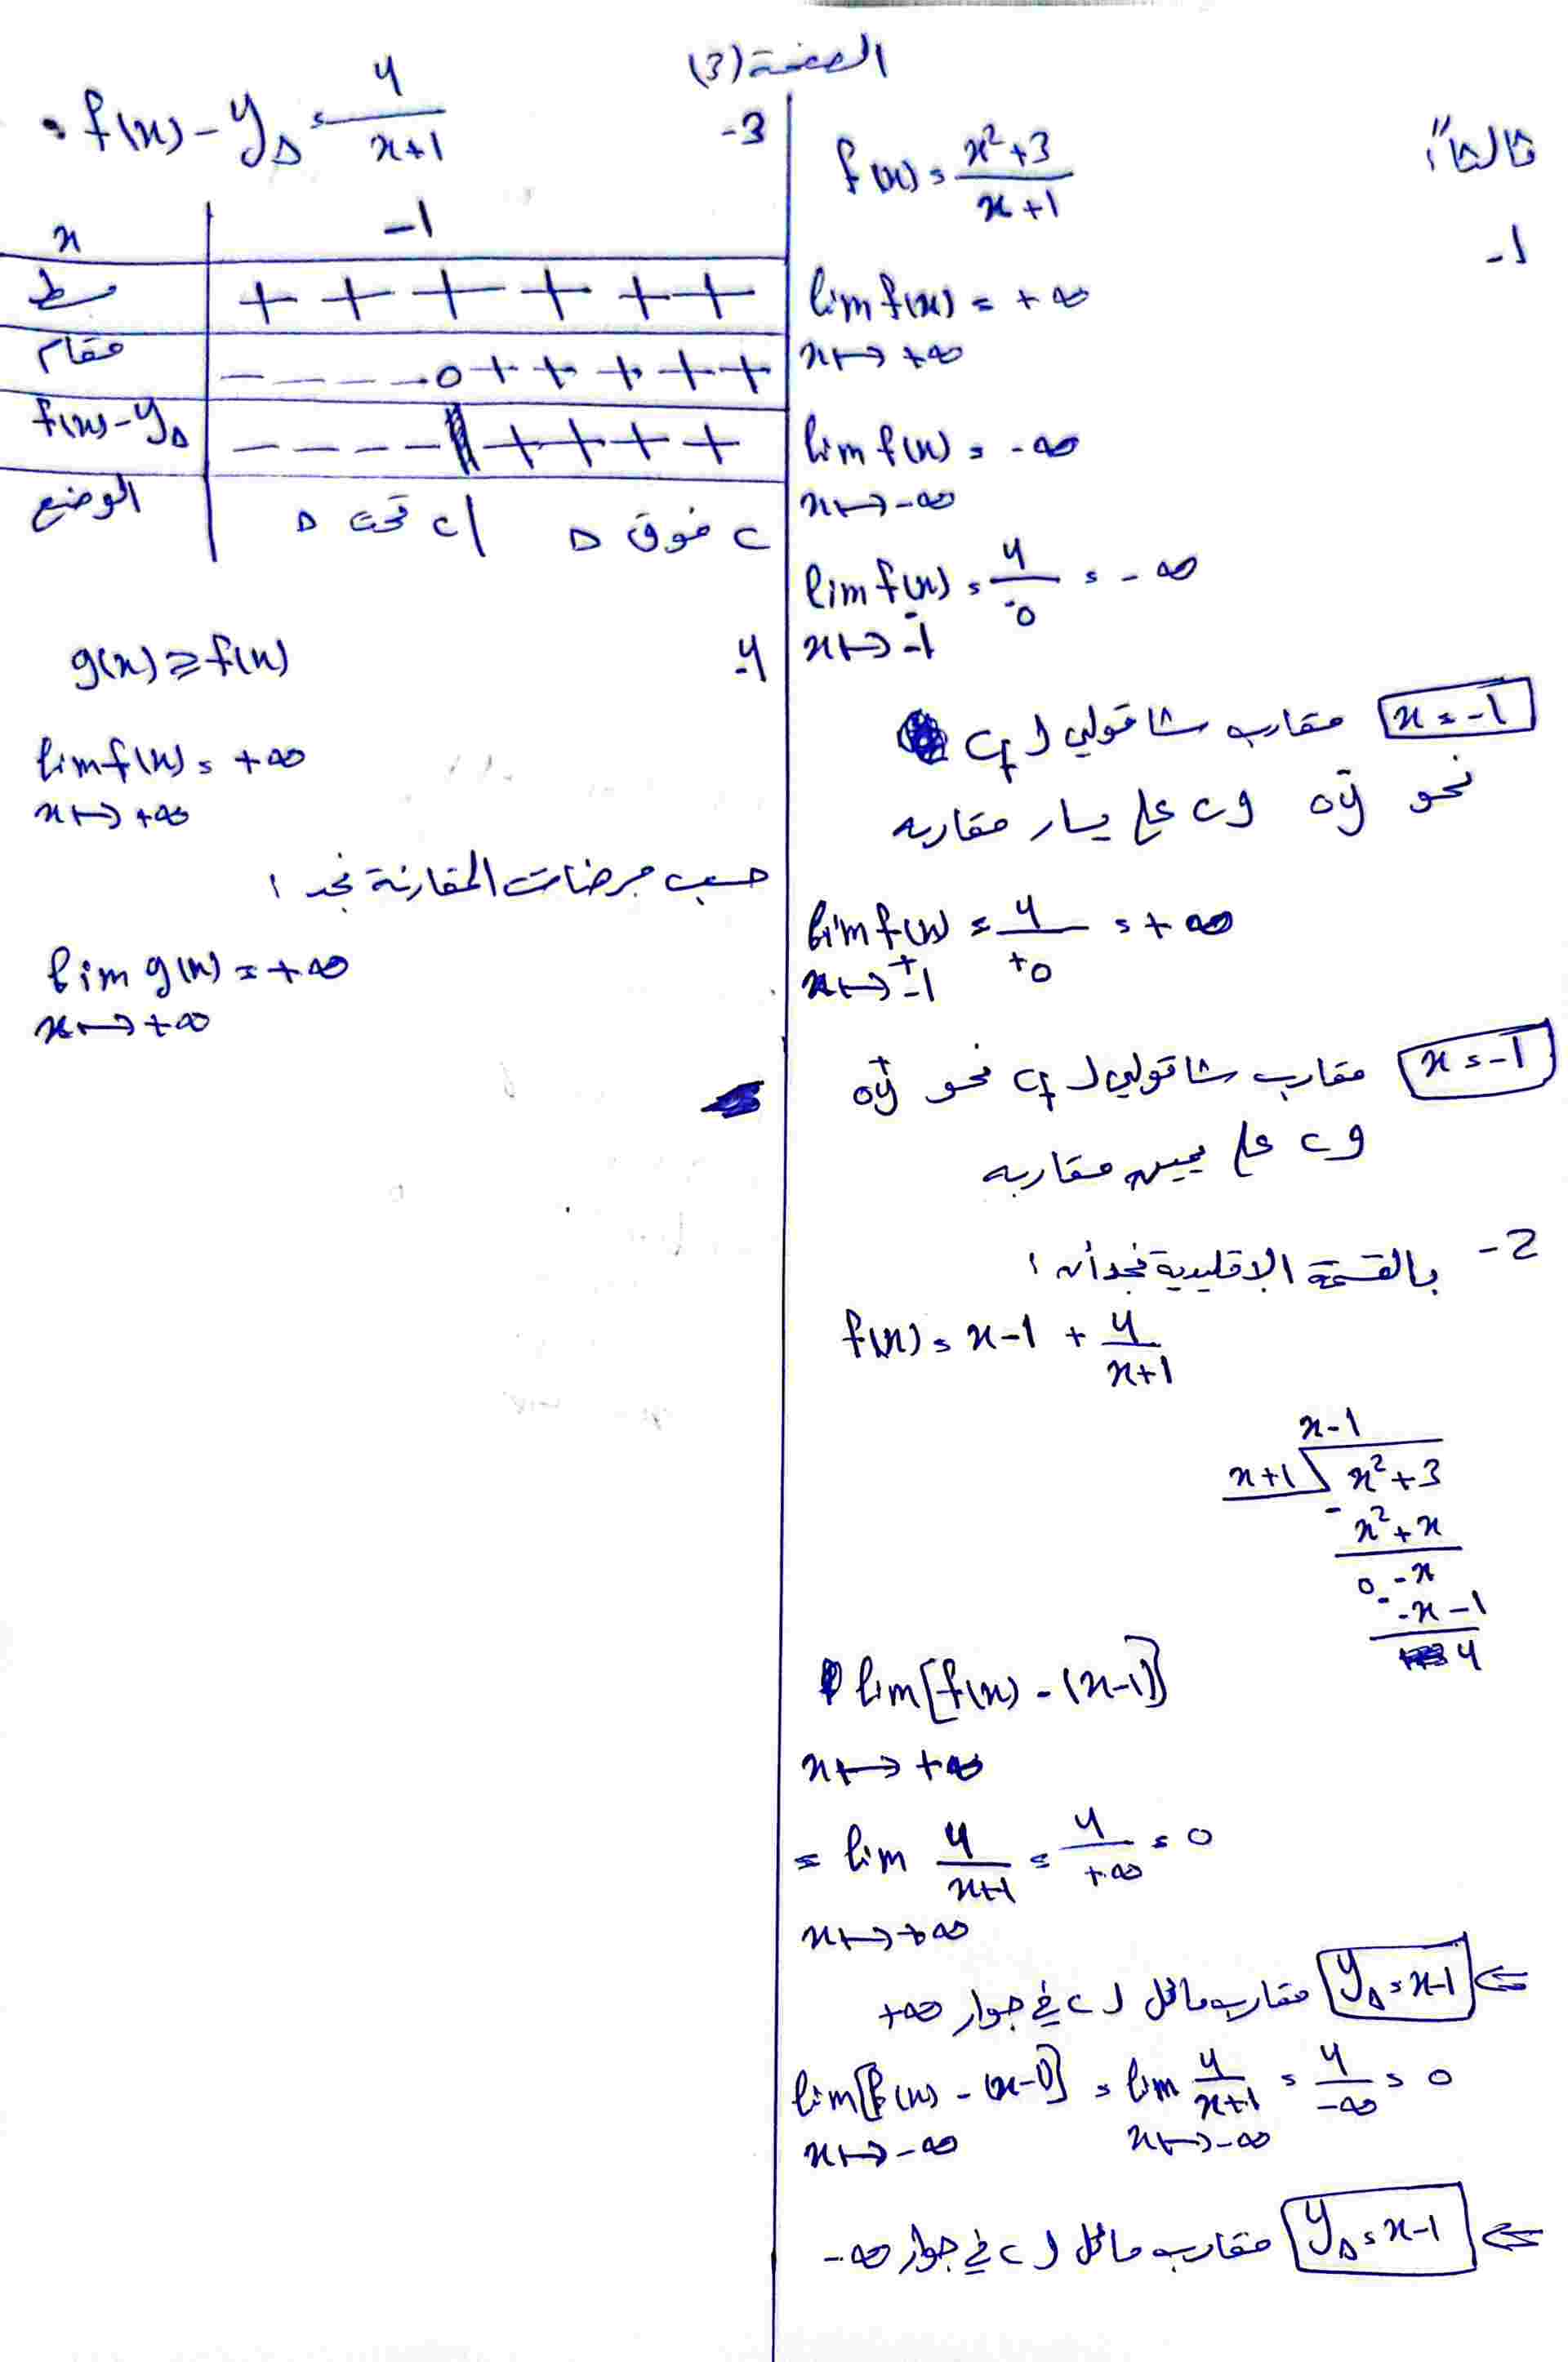 الصفحة (3)
ثالثاً:
f(x) = \frac{x²+3}{x+1}
-1
lim f(x) = +∞
x↦+∞
lim f(x) = -∞
x↦-∞
lim f(x) = \frac{4}{-0} = -∞
x↦-1⁻
x = -1 مقارب شاقولي لـ Cf
نحو oy⁻ و C على يسار مقاربه
lim f(x) = \frac{4}{+0} = +∞
x↦-1⁺
x = -1 مقارب شاقولي لـ Cf نحو oy⁺
و C على يمين مقاربه
-2 بالقسمة الإقليدية نجد أن:
f(x) = x-1 + \frac{4}{x+1}
x-1
x+1 x²+3
- x²+x
0 -x
- -x-1
4
lim[f(x) - (x-1)]
x↦+∞
= lim \frac{4}{x+1} = \frac{4}{+∞} = 0
x↦+∞
⇐ y_Δ = x-1 مقارب مائل لـ C في جوار +∞
lim[f(x) - (x-1)] = lim \frac{4}{x+1} = \frac{4}{-∞} = 0
x↦-∞ x↦-∞
⇐ y_Δ = x-1 مقارب مائل لـ C في جوار -∞
-3
• f(x) - y_Δ = \frac{4}{x+1}
x -1
بسط + + + + + +
مقام - - - - 0 + + + + +
f(x)-y_Δ - - - - || + + + +
الوضع C تحت Δ | C فوق Δ
-4
g(x) ≥ f(x)
lim f(x) = +∞
x↦+∞
حسب مبرهنات المقارنة نجد:
lim g(x) = +∞
x↦+∞